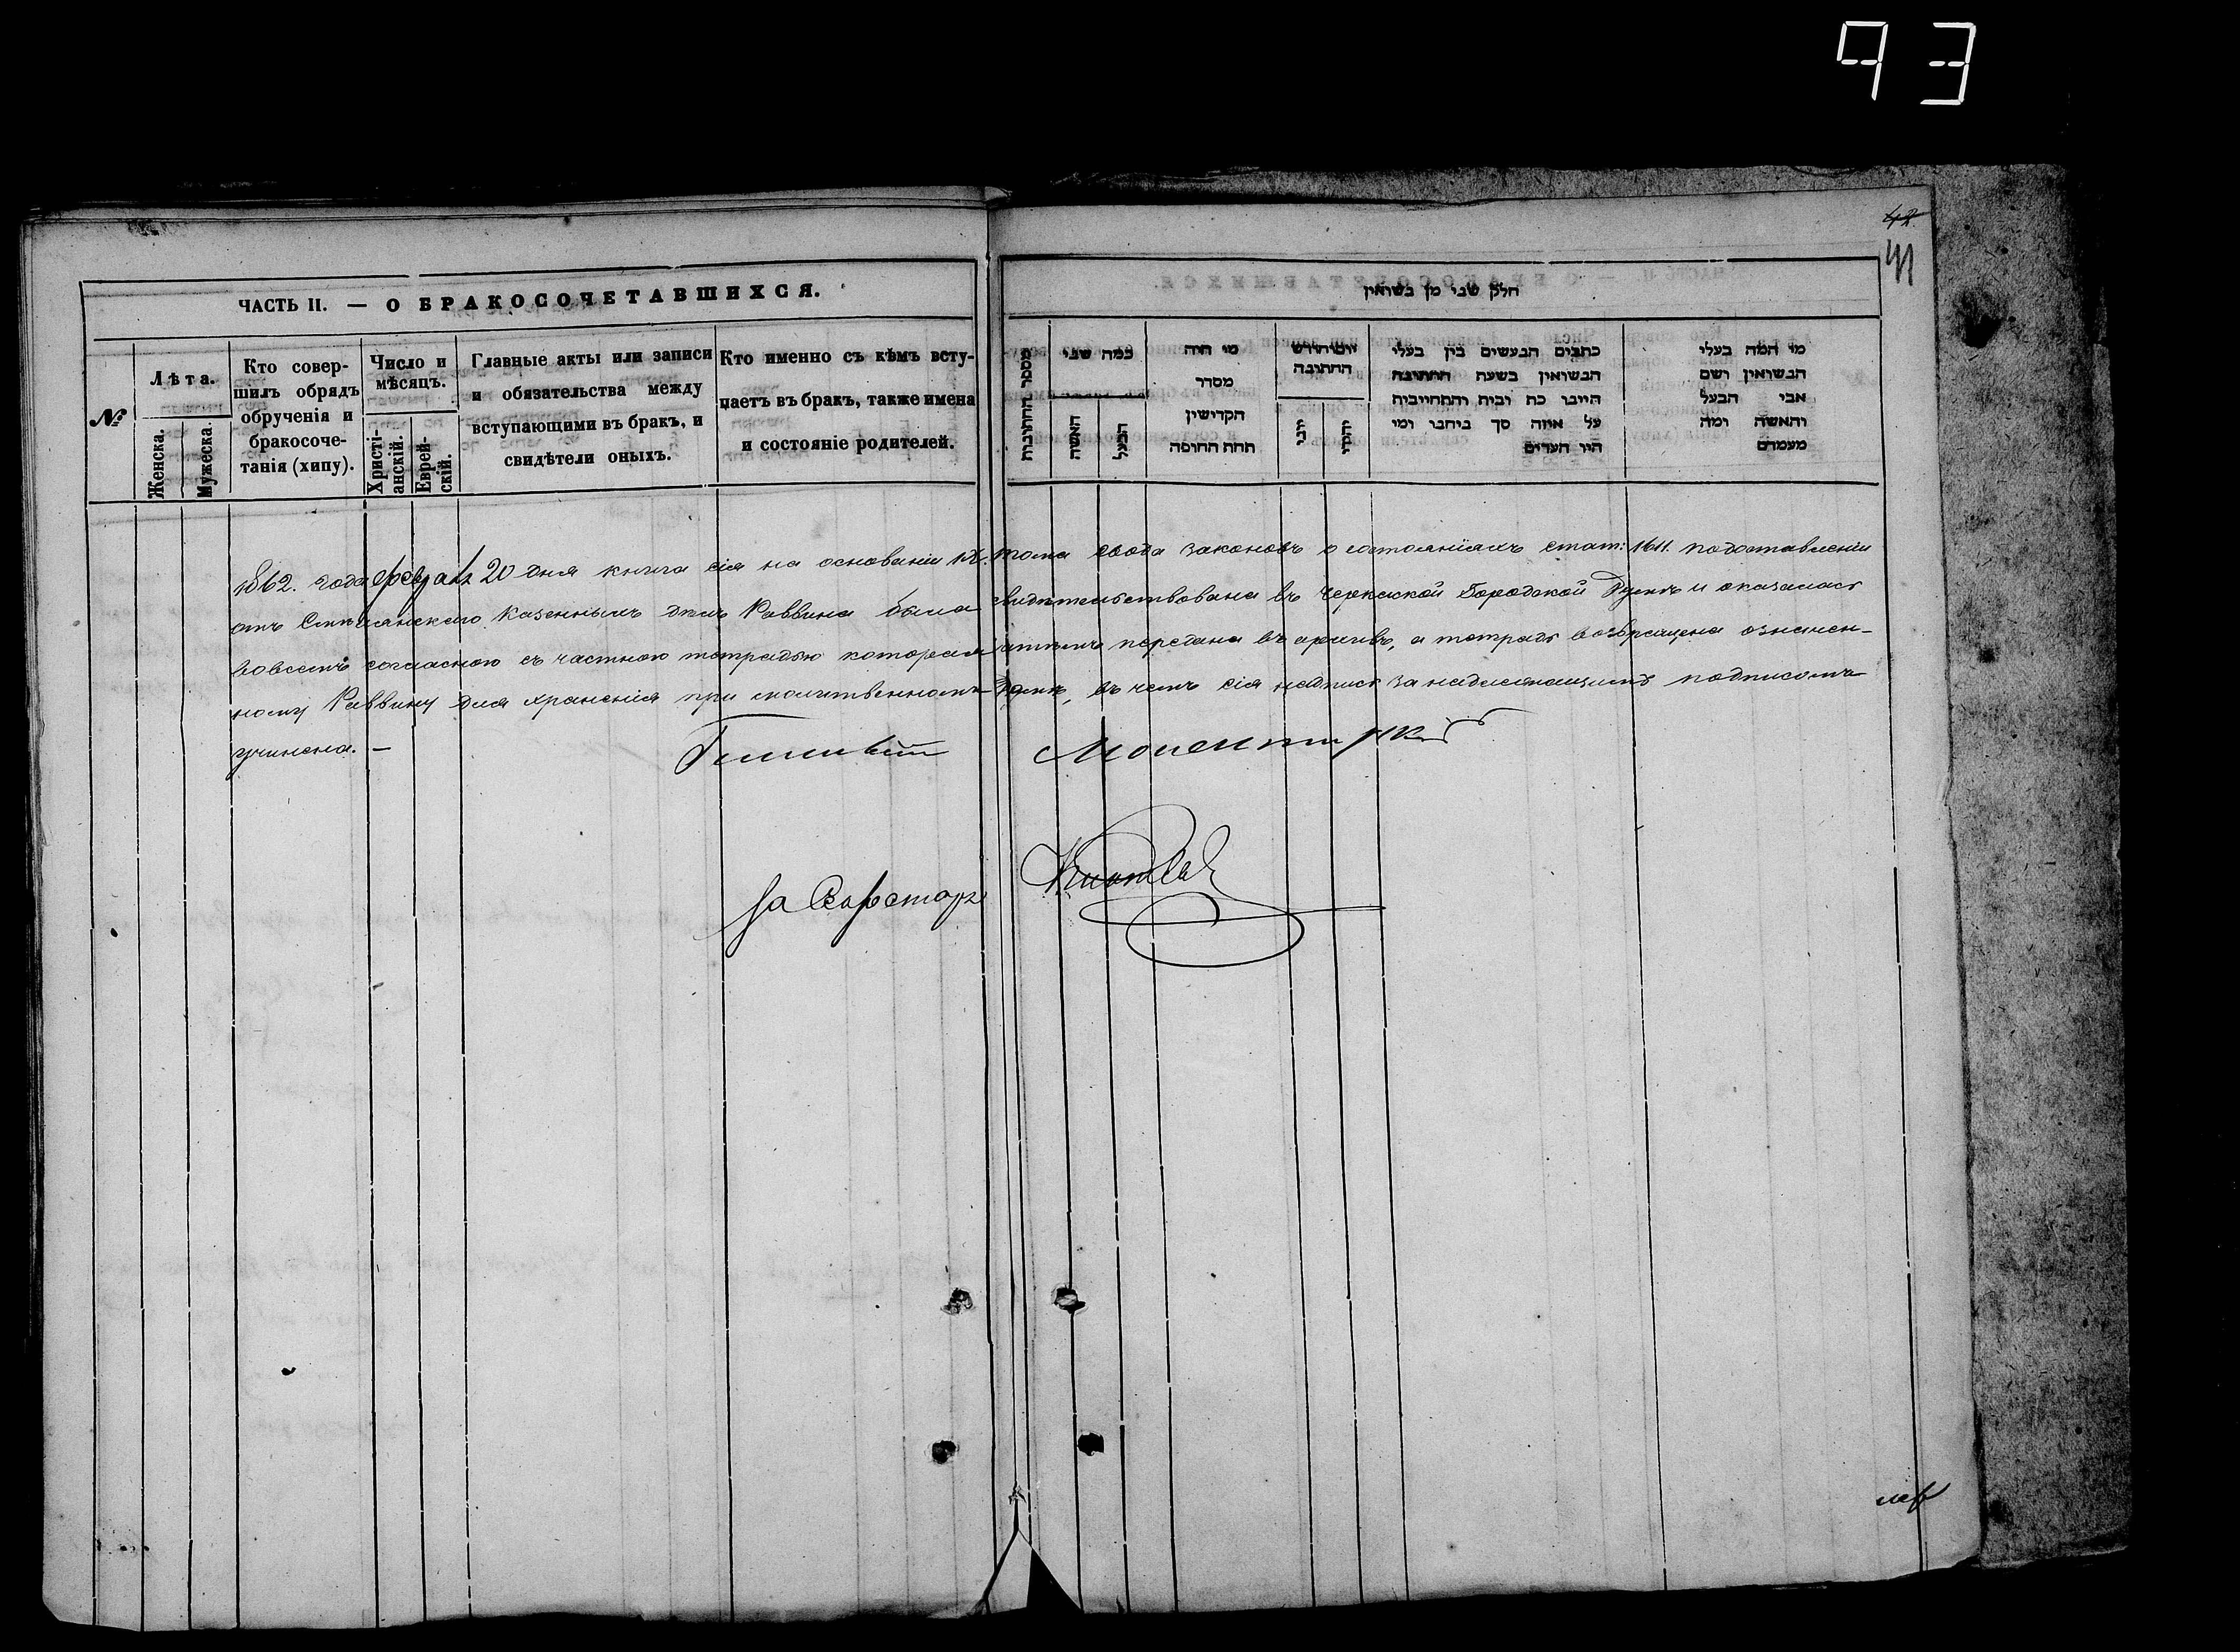 93
42
41
ЧАСТЬ II. — О БРАКОСОЧЕТАВШИХСЯ.
№
Лѣта.
Женска.
Мужеска.
Кто совер-
шилъ обрядъ
обрученія и
бракосоче-
танія (хипу).
Число и
мѣсяцъ.
Христі-
анскій.
Еврей-
скій.
Главные акты или записи
и обязательства между
вступающими въ бракъ, и
свидѣтели оныхъ.
Кто именно съ кѣмъ всту-
паетъ въ бракъ, также имена
и состояніе родителей.
חלק שני מן נשואין
מספר החתונות
כמה שני
האשה
הבעל
מי היה
מסדר
הקדושין
תחת החופה
יום וחודש
החתונה
כתבים הנעשים בין בעלי
הנשואין בשעת החתונה
היינו כת וביה והתחייבות
על איזה סך ביחבו ומי
היו העדים
מי המה בעלי
הנשואין ושם
אבי הבעל
והאשה ומה
מעמדם
1862. года февраля 20 дня книга сія на основаніи IX. тома свода законовъ о состояніяхъ стат: 1611. по доставленіи
отъ Смѣлянскаго Казеннымъ дѣлъ Раввина была свидѣтельствована въ Черкаской Городской Думѣ и оказалась
во всемъ согласною съ частною тетрадью которая затѣмъ передана въ архивъ, а тетрадь возвращена означен-
ному Раввину для храненія при молитвенномъ домѣ, въ чемъ сія надпись за надлежащимъ подписомъ
учинена. —
за Секретаря